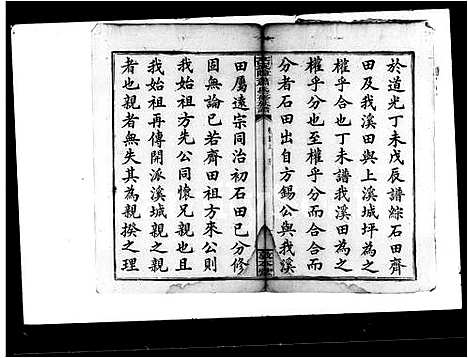 於道光丁未戊辰譜綜石田齊
田及我溪田與上溪城坪為之
權乎合也丁未譜我溪田為之
權乎分也至權乎分合合而
分者石田出自方錫公與我溪
田屬遠宗同治初石田已分修
固無論已若齊田祖方來公則
我始祖方先公同懷兄親也且
我始祖再傳開派溪城親之親
者也親者無失其為親揆之理